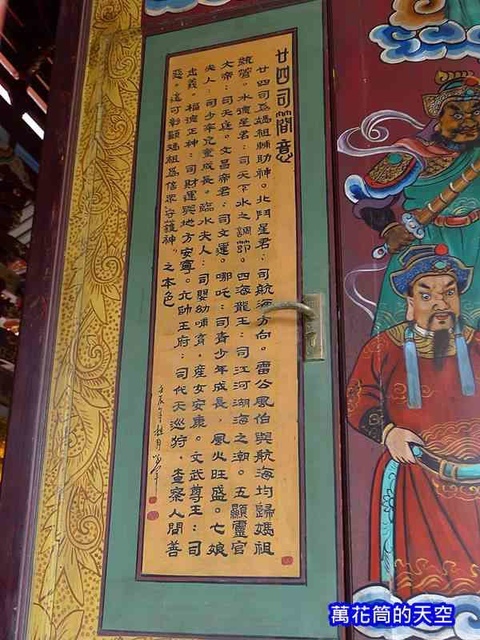 廿四司簡意
廿四司為媽祖輔助神。北鬥星君：司航海方向。雷公風伯與航海均歸媽祖
執管。水德星君：司天下水之調節。四海龍王：司江河湖海之潮。五顯靈官
大帝：司天庭。文昌帝君：司文運。哪吒：司青少年成長，風火旺盛。七娘
夫人：司少年兒童成長。臨水夫人：司嬰幼哺育，產女安康。文武尊王：司
忠義。福德正神：司財運與地方安寧。六帥王府：司代天巡狩，查察人間善
惡。這可彰顯媽祖為信眾守護神。之本色
萬花筒的天空